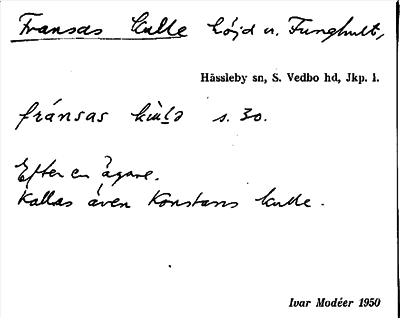 Fransas kulle höjd n. Funghult,
Hässleby sn, S. Vedbo hd, Jkp. l.
fránsas kùlə s. 30.
Efter en ägare.
Kallas även Konstans kulle.
Ivar Modéer 1950